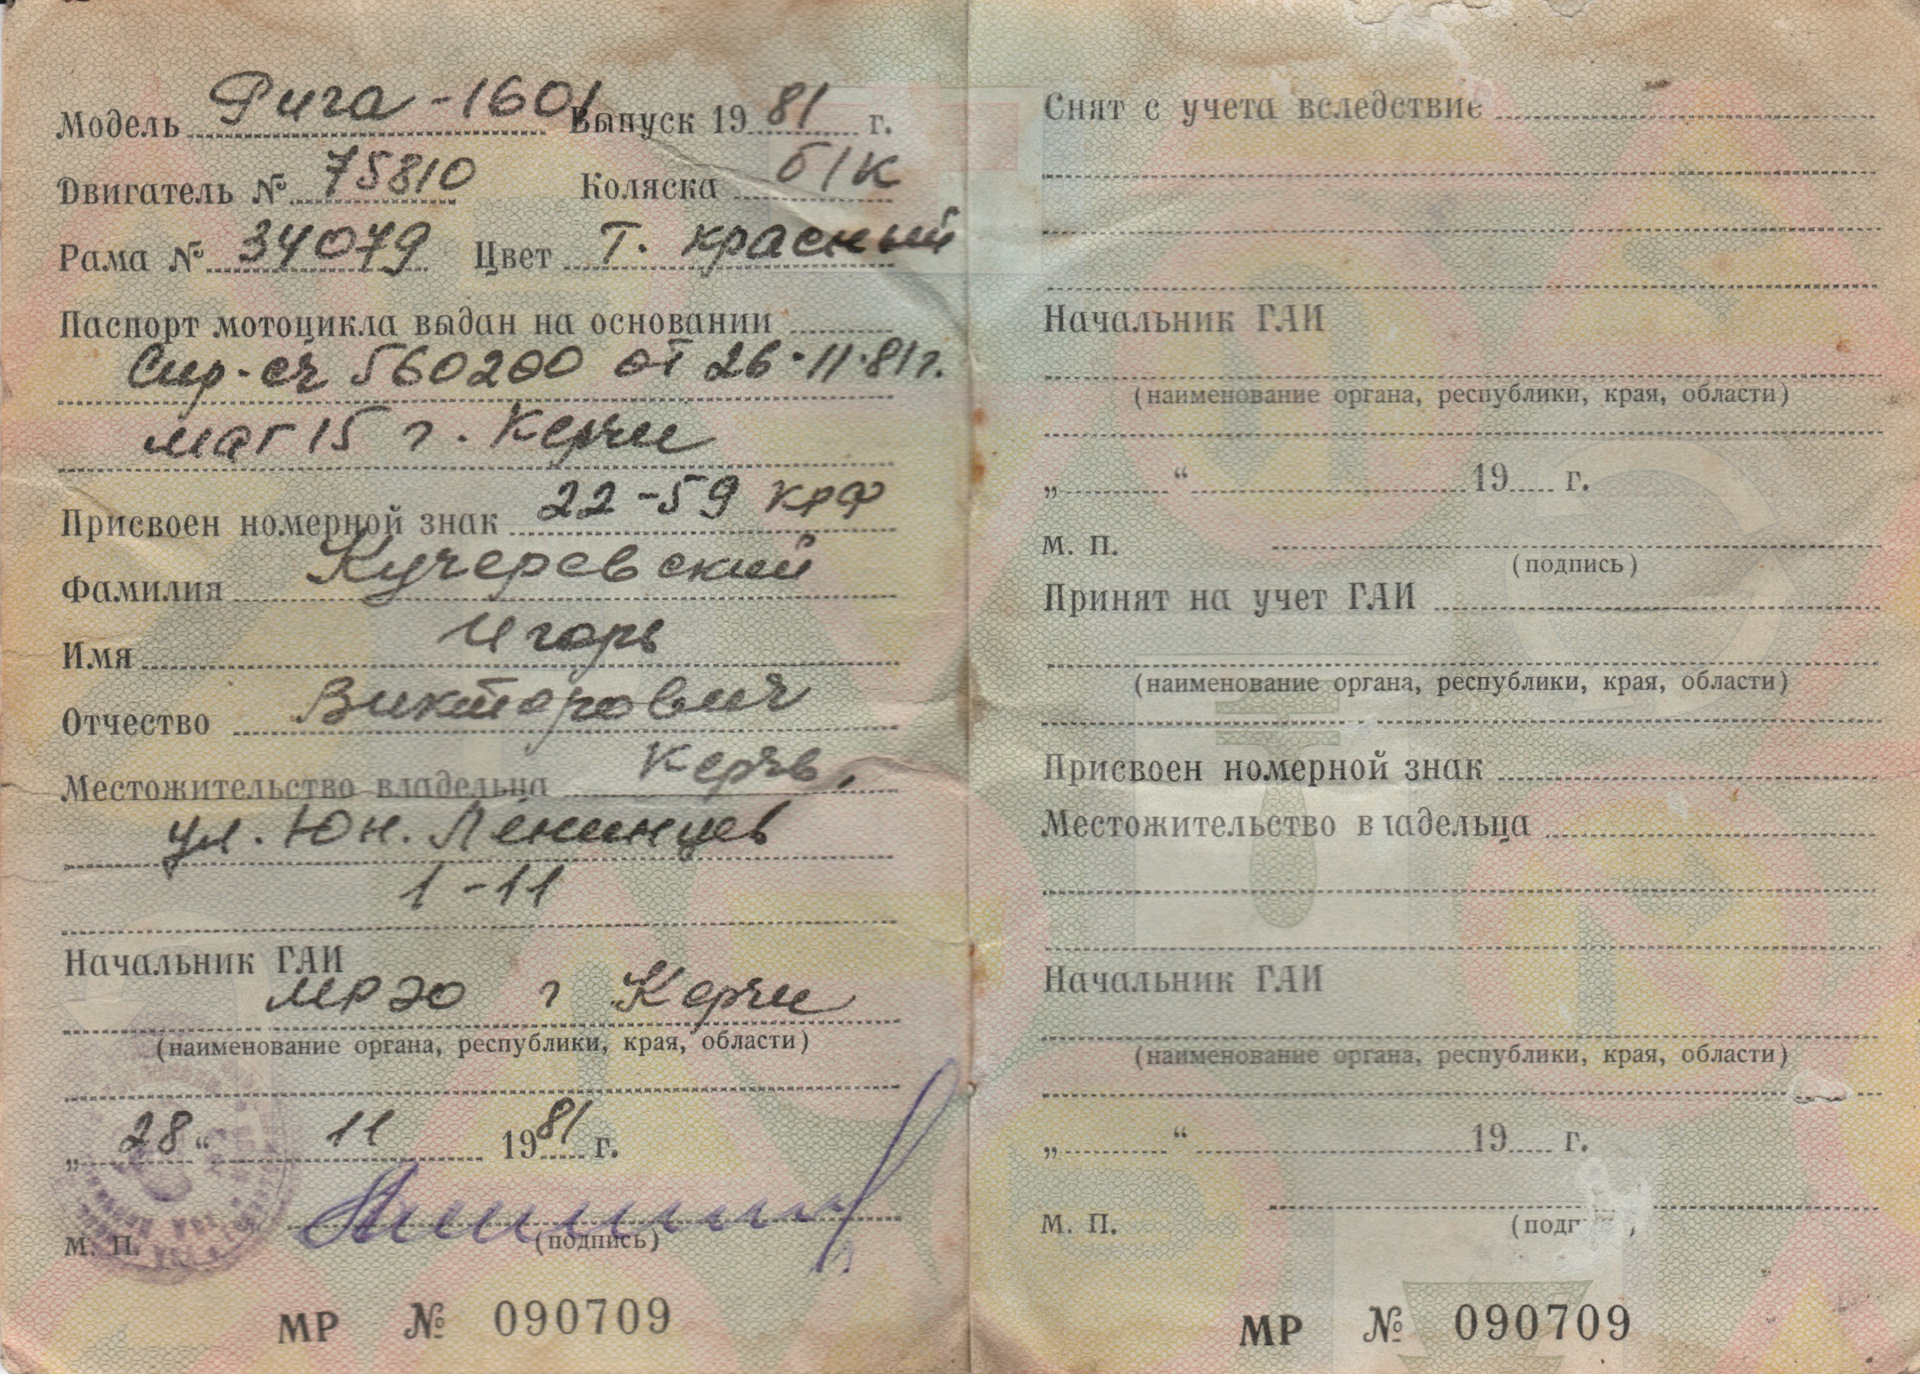 Модель Рига-1601 Выпуск 1981 г.
Двигатель № 75810 Коляска б/к
Рама № 34079 Цвет Т. красный
Паспорт мотоцикла выдан на основании
Спр-сч 560200 от 26.11.81г.
маг 15 г. Керчи
Присвоен номерной знак 22-59 крф
Фамилия Кучеревский
Имя Игорь
Отчество Викторович
Местожительство владельца Керчь,
ул. Юн. Ленинцев
1-11
Начальник ГАИ
МРЭО г Керчи
(наименование органа, республики, края, области)
„28“ 11 1981 г.
М. П. (подпись)
МР № 090709
Снят с учета вследствие
Начальник ГАИ
(наименование органа, республики, края, области)
„ “ 19 г.
М. П.
(подпись)
Принят на учет ГАИ
(наименование органа, республики, края, области)
Присвоен номерной знак
Местожительство владельца
Начальник ГАИ
(наименование органа, республики, края, области)
„ “ 19 г.
М. П.
МР № 090709